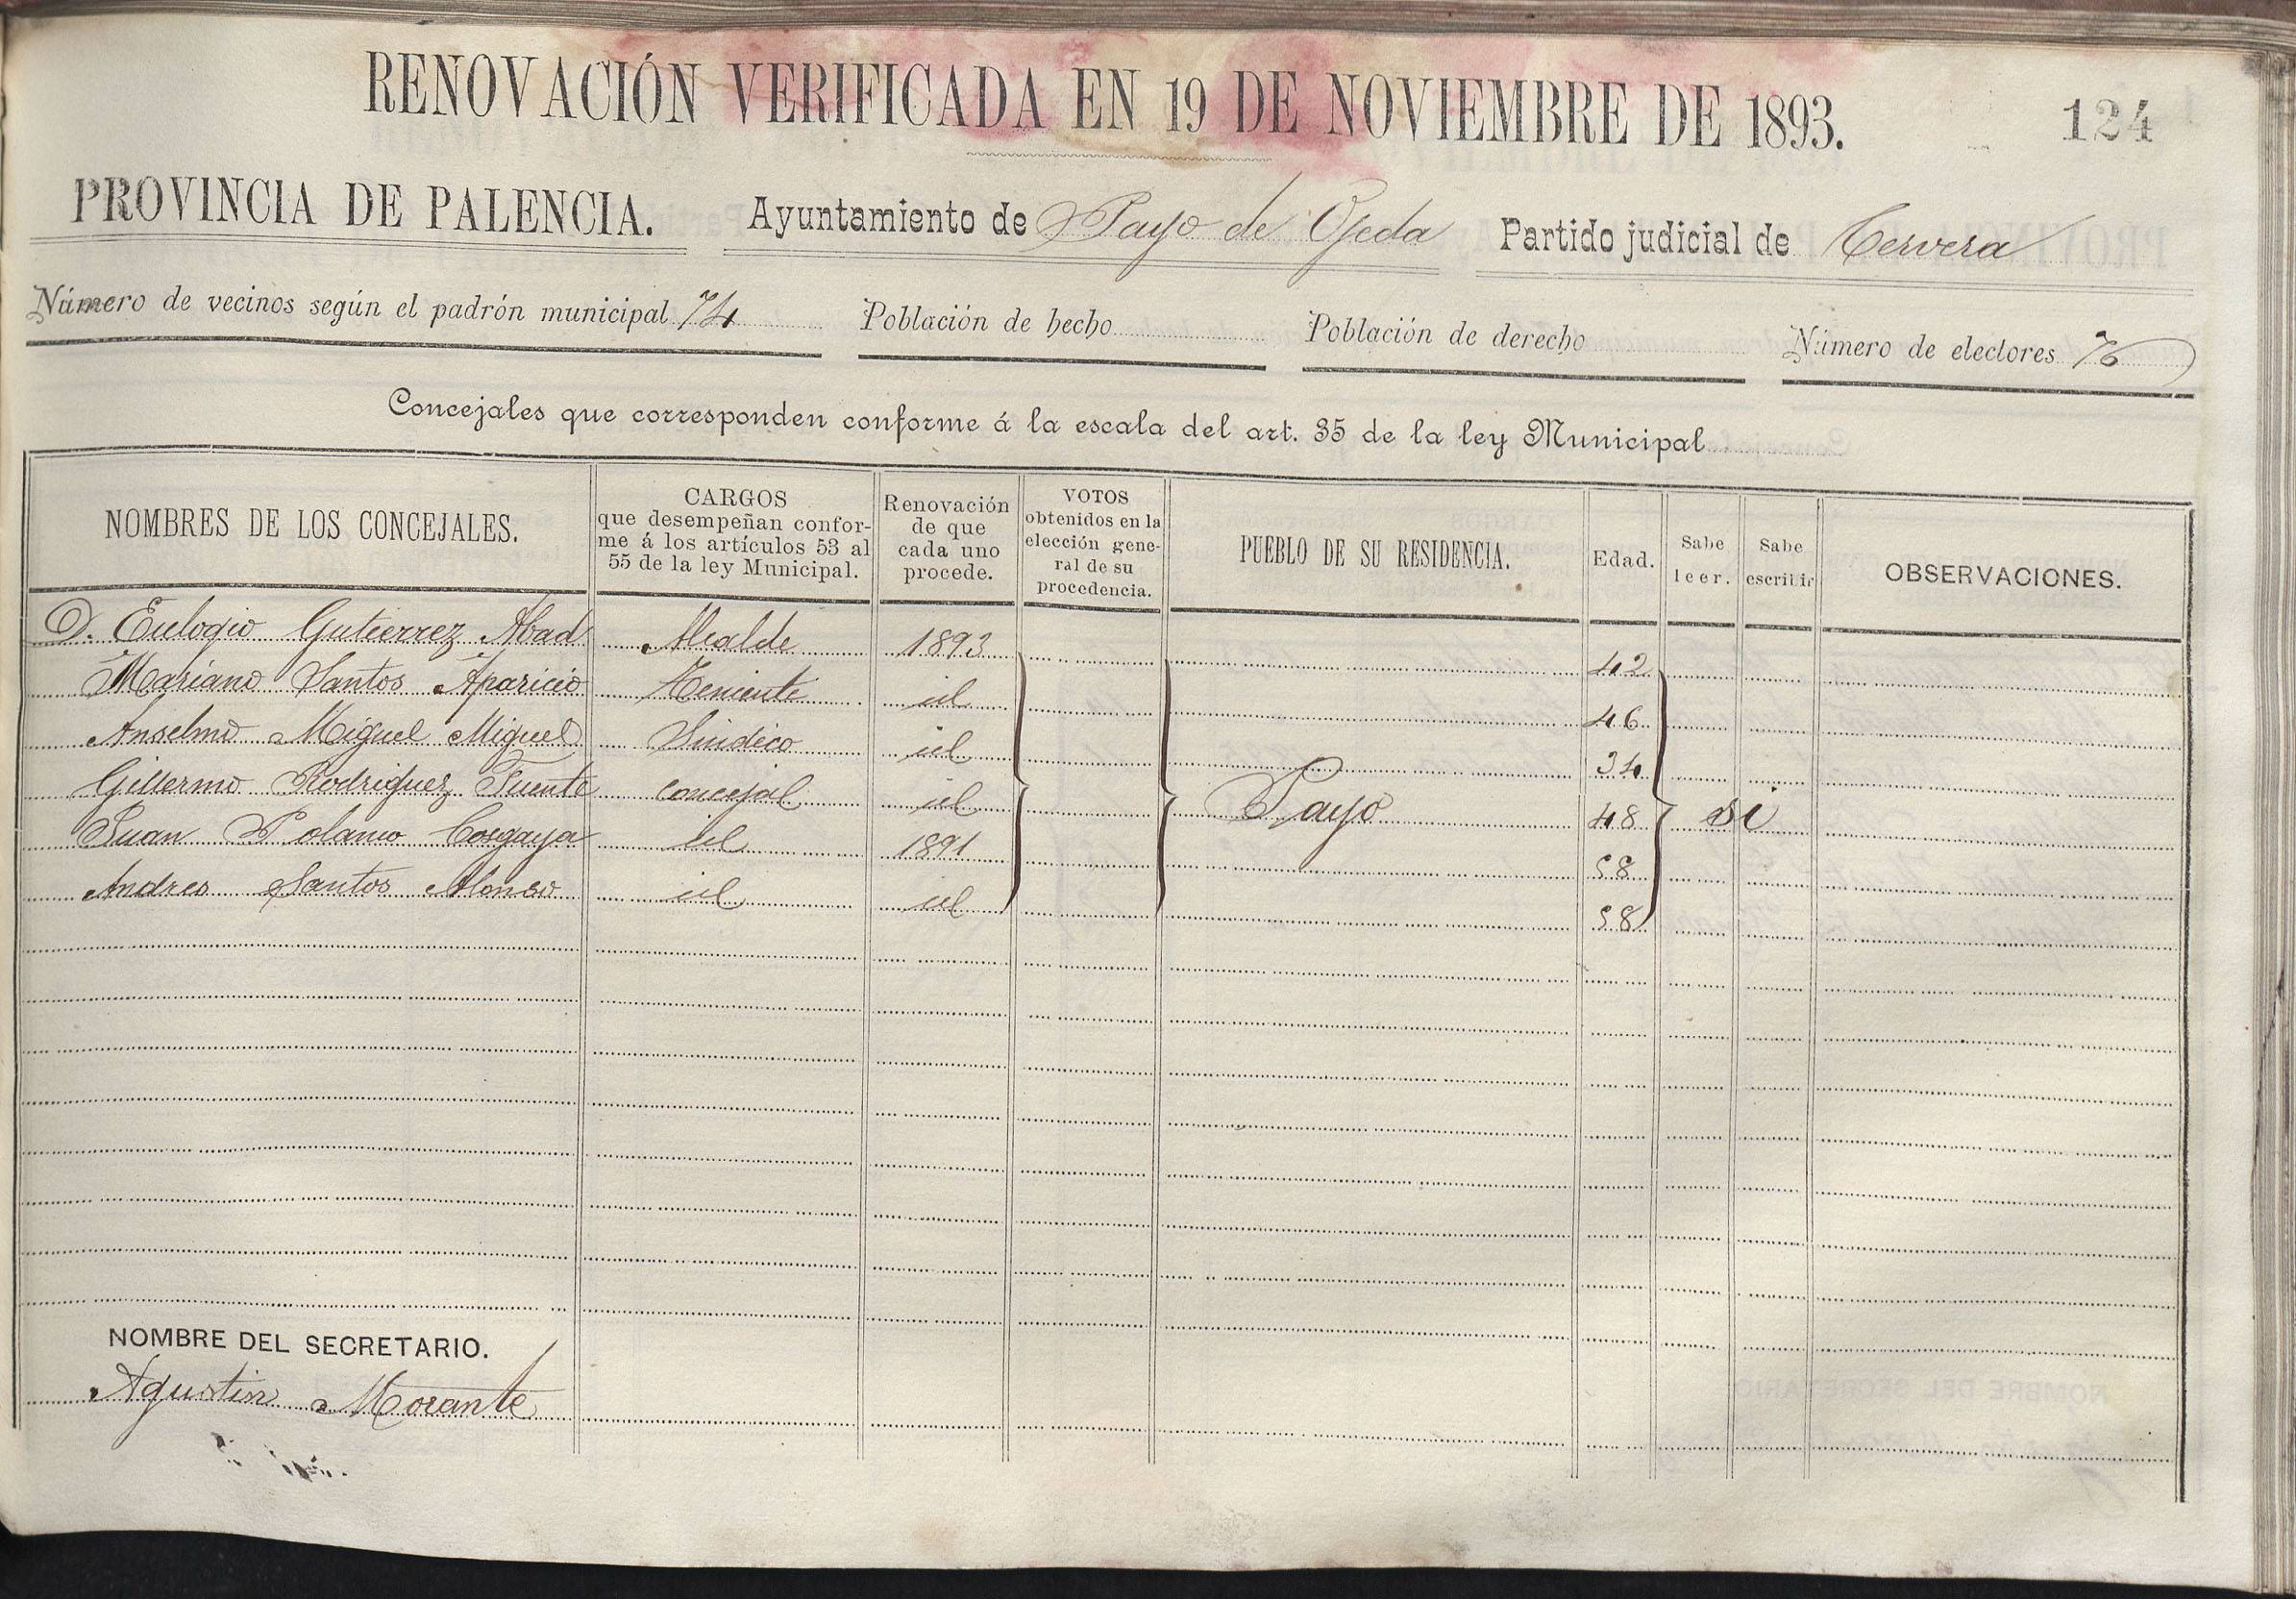 RENOVACIÓN VERIFICADA EN 19 DE NOVIEMBRE DE 1893.
124
PROVINCIA DE PALENCIA. Ayuntamiento de Payo de Ojeda Partido judicial de Cervera
Número de vecinos según el padrón municipal 74 Población de hecho Población de derecho Número de electores 76
Concejales que corresponden conforme á la escala del art. 35 de la ley Municipal
NOMBRES DE LOS CONCEJALES.
CARGOS
que desempeñan confor-
me á los artículos 53 al
55 de la ley Municipal.
Renovación
de que
cada uno
procede.
VOTOS
obtenidos en la
elección gene-
ral de su
procedencia.
PUEBLO DE SU RESIDENCIA.
Edad.
Sabe
leer.
Sabe
escribir
OBSERVACIONES.
D. Eulogio Gutierrez Abad Alcalde 1893 42
Mariano Santos Aparicio Teniente id 46
Anselmo Miguel Miguel Sindico id 34
Gillermo Rodriguez Fuente concejal id Payo 48 si
Juan Polanco Cosgaya id 1891 58
Andres Santos Alonso id id 58
NOMBRE DEL SECRETARIO.
Agustin Morante